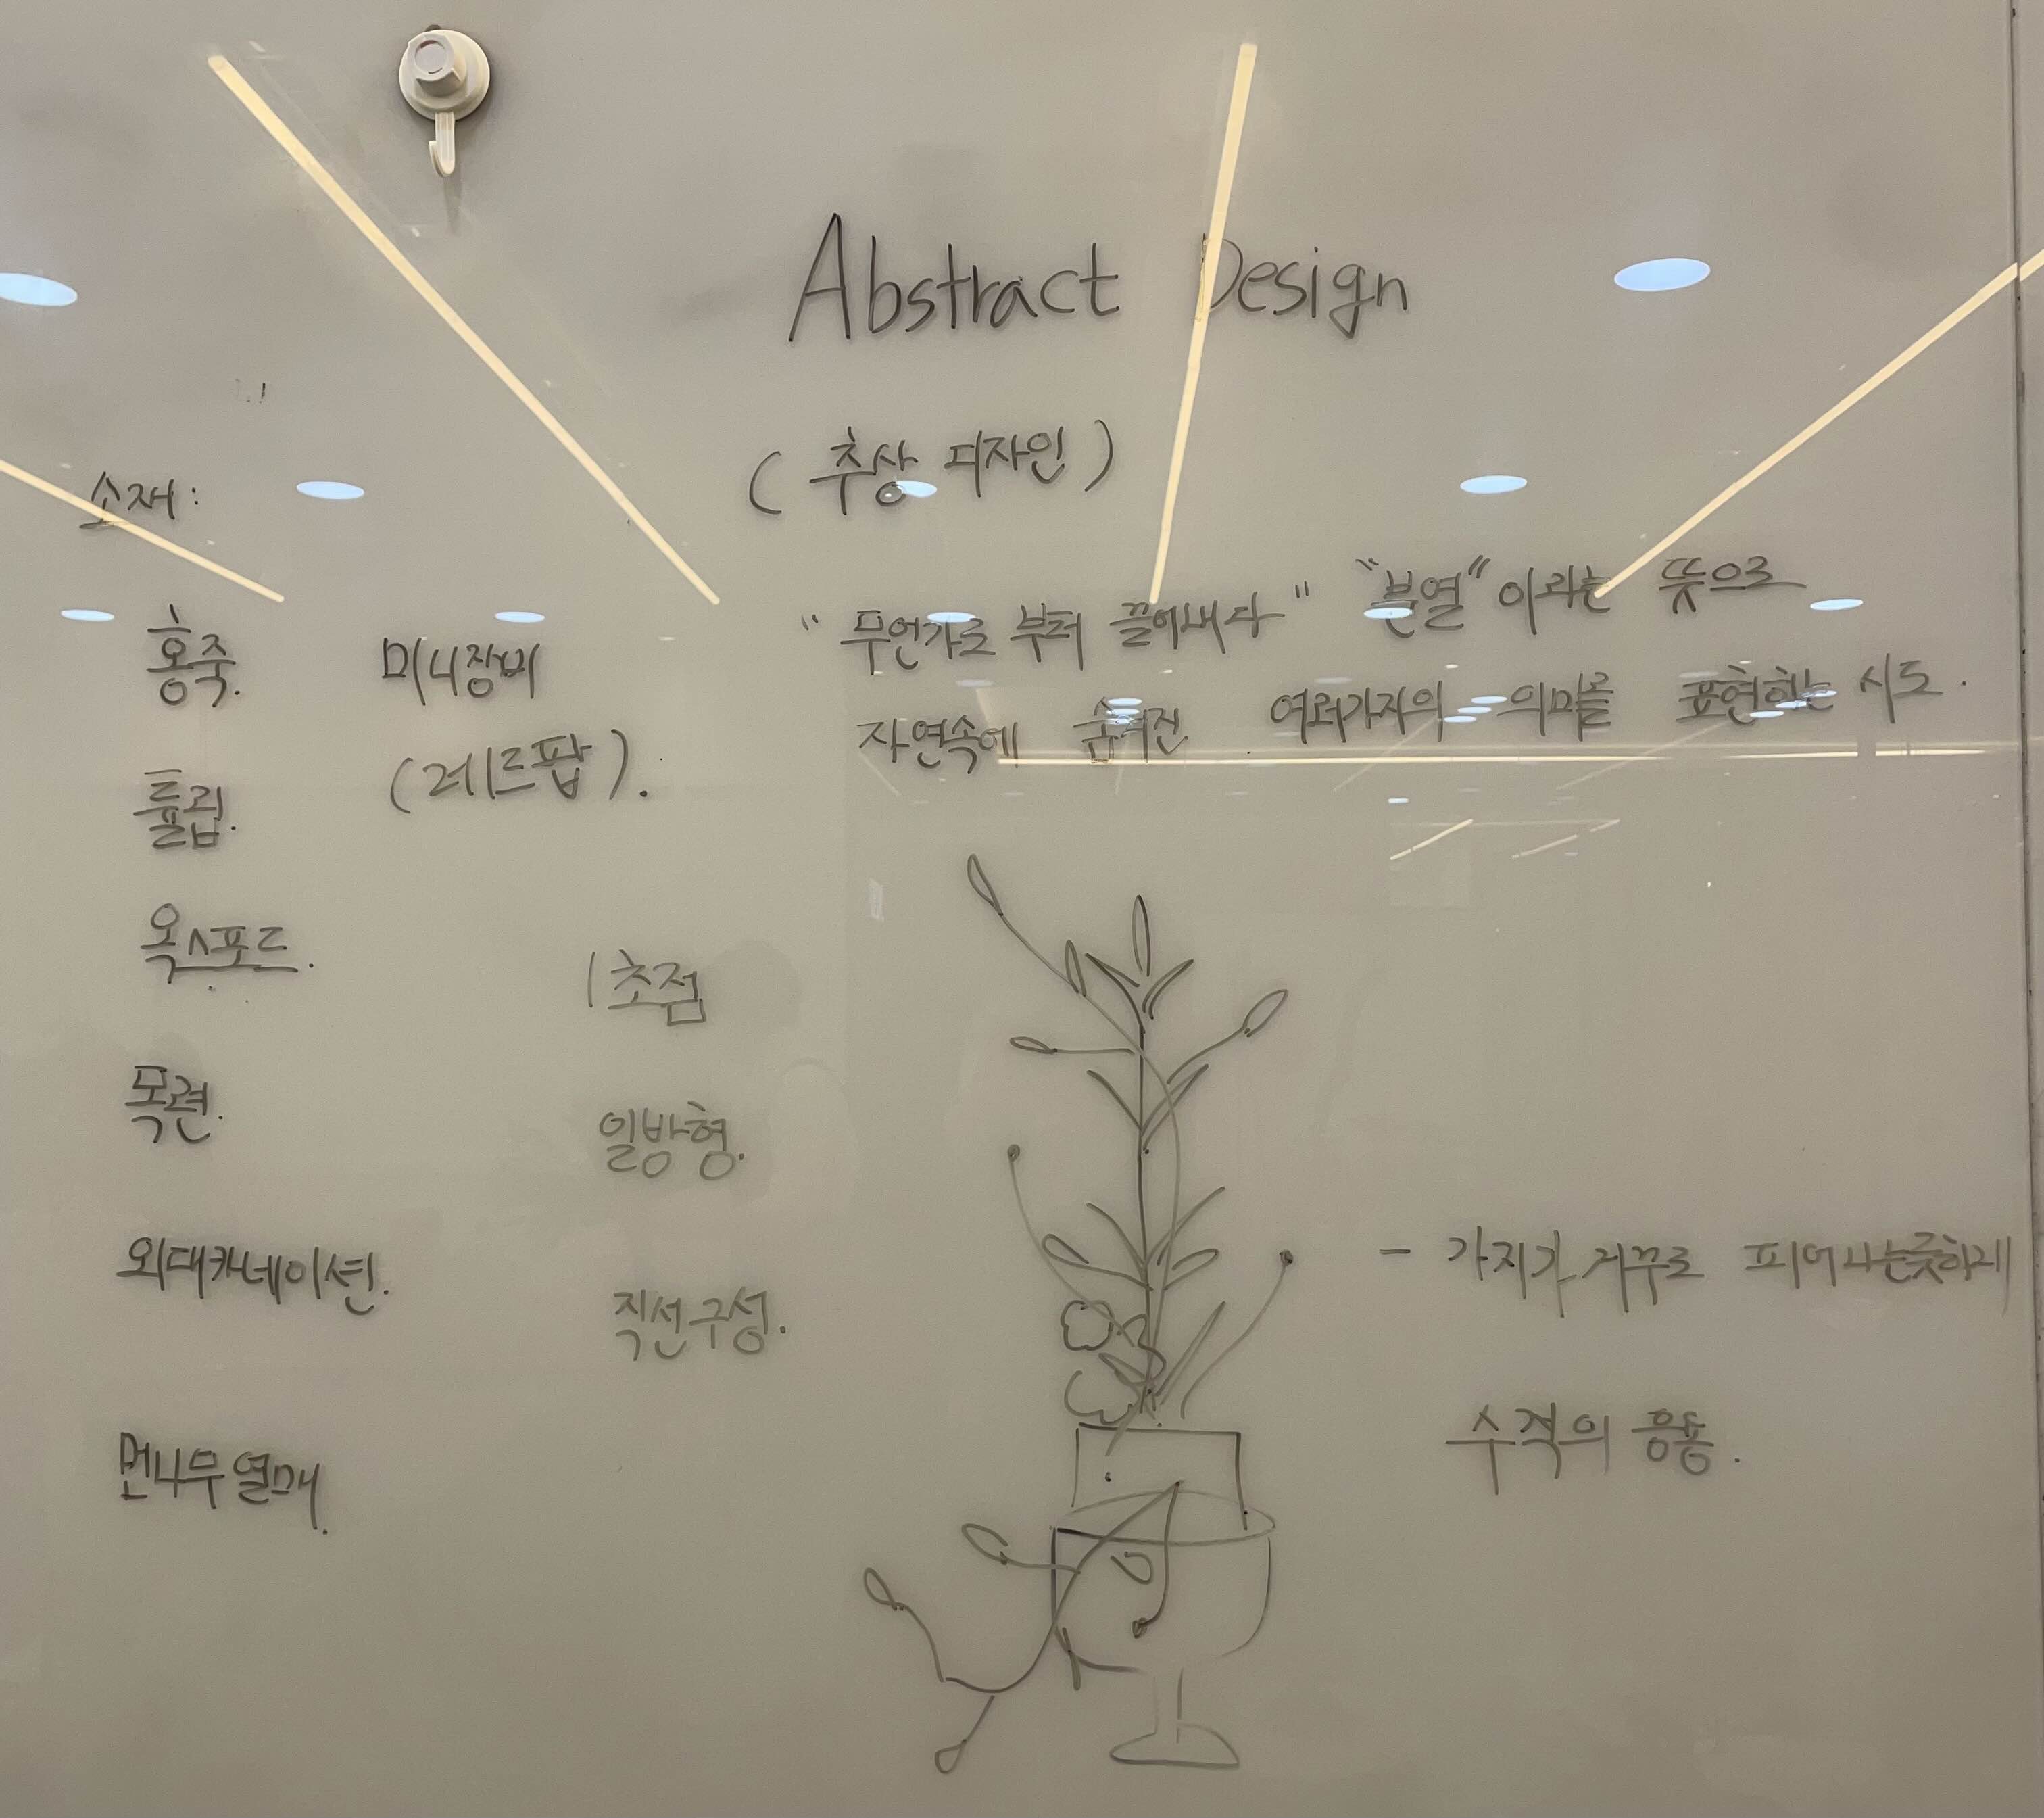 Abstract Design
(추상 디자인)
"무언가로 부터 끌어내다" "분열"이라는 뜻으로
자연속에 숨겨진 여러가지의 의미를 표현하는 시도.
소재:
홍죽. 미니장미
(레드팝).
튤립.
옥스포드.
목련.
외대카네이션.
먼나무열매.
1초점
일방형.
직선구성.
- 가지가 거꾸로 피어나는듯하게
수격의 응용.